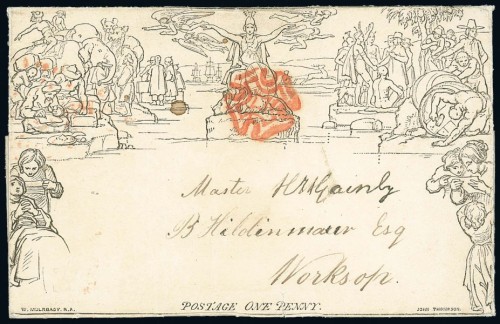 Master H Gainly
B Hildenmaier Esq
Worksop.
POSTAGE ONE PENNY.
W. MULREADY. R.A.
JOHN THOMPSON.